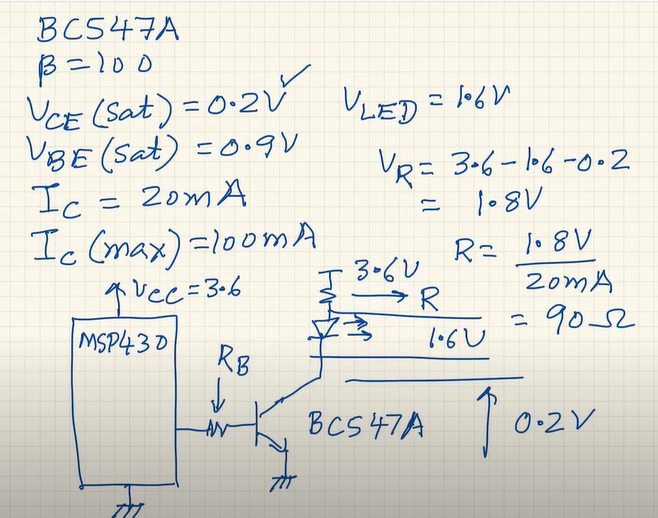 BC547A
β = 100
VCE (sat) = 0.2V
VBE (sat) = 0.9V
IC = 20mA
Ic (max) = 100mA
VLED = 1.6V
VR = 3.6-1.6-0.2
= 1.8V
R = 1.8V
20mA
= 90Ω
Vcc = 3.6
MSP430
RB
3.6V
R
1.6V
BC547A
0.2V